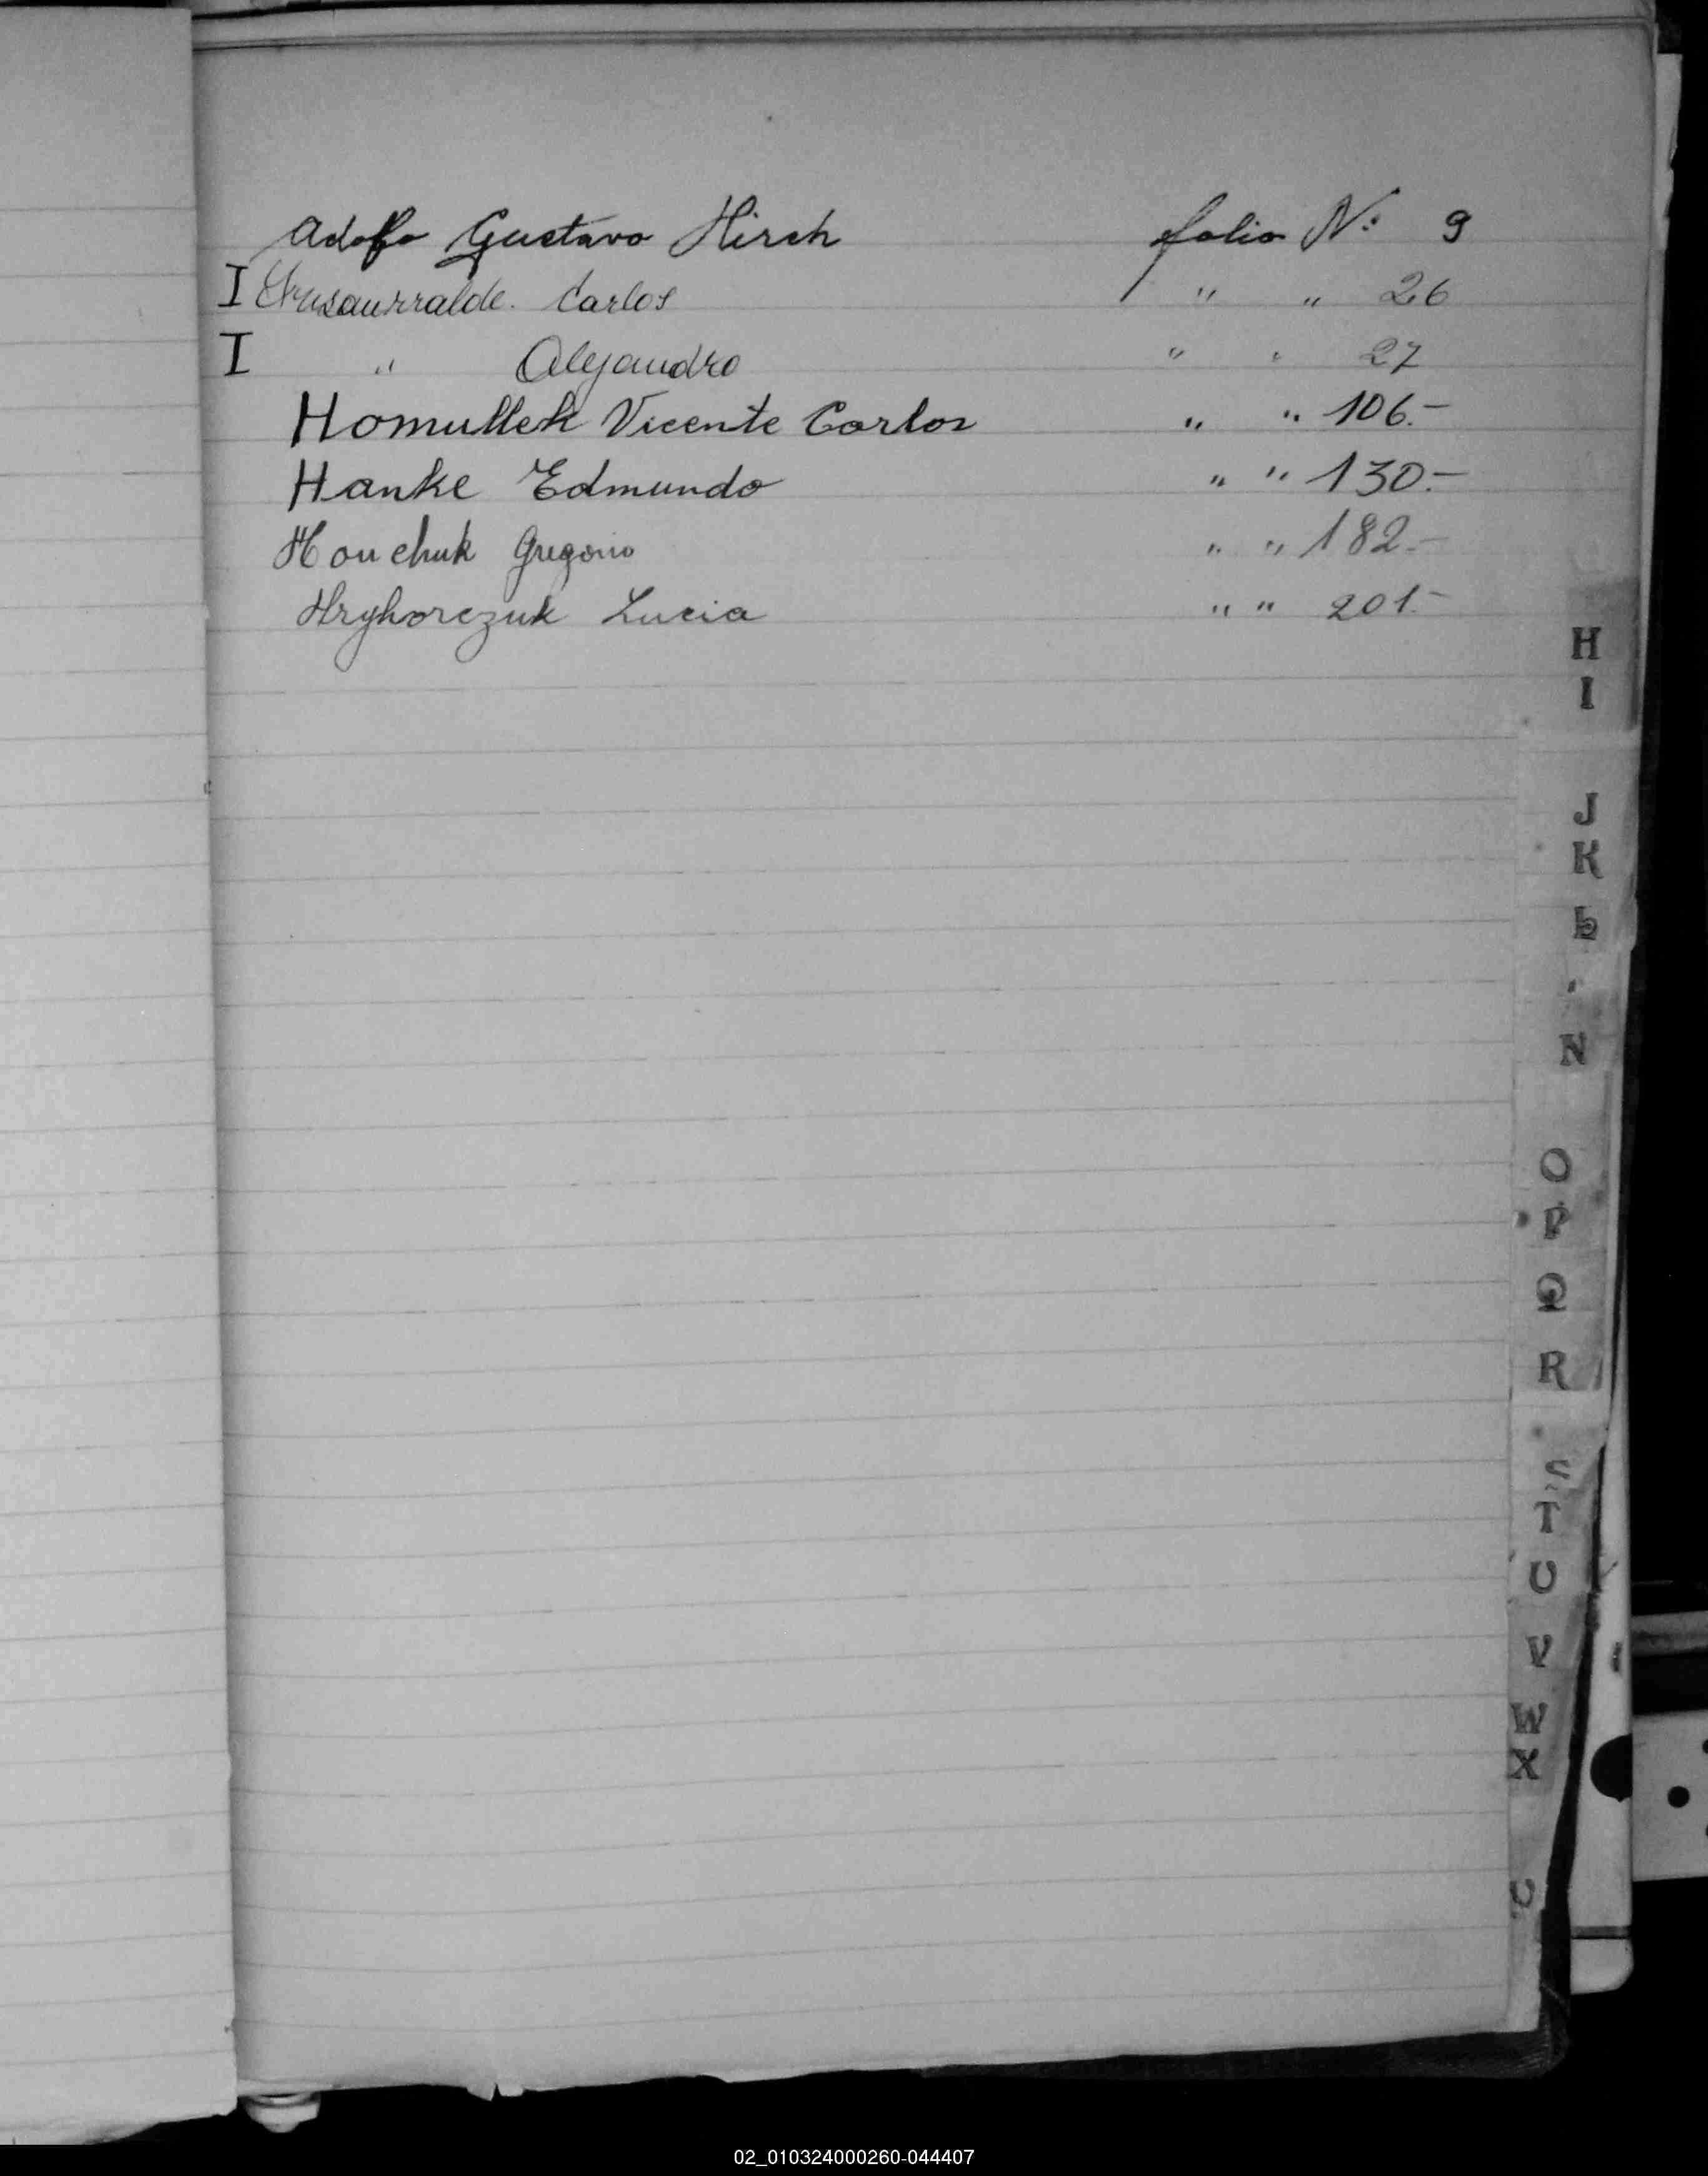 Adolfo Gustavo Hirsch folio Nº 9
I Irusaurralde. Carlos " " 26
I " Alejandro " " 27
Homullek Vicente Carlos " " 106.-
Hanke Edmundo " " 130.-
Houchuk Gregorio " " 182.-
Hryhorczuk Lucia " " 201.-
H
I
J
K
N
O
P
Q
R
S
T
U
V
W
X
02_010324000260-044407